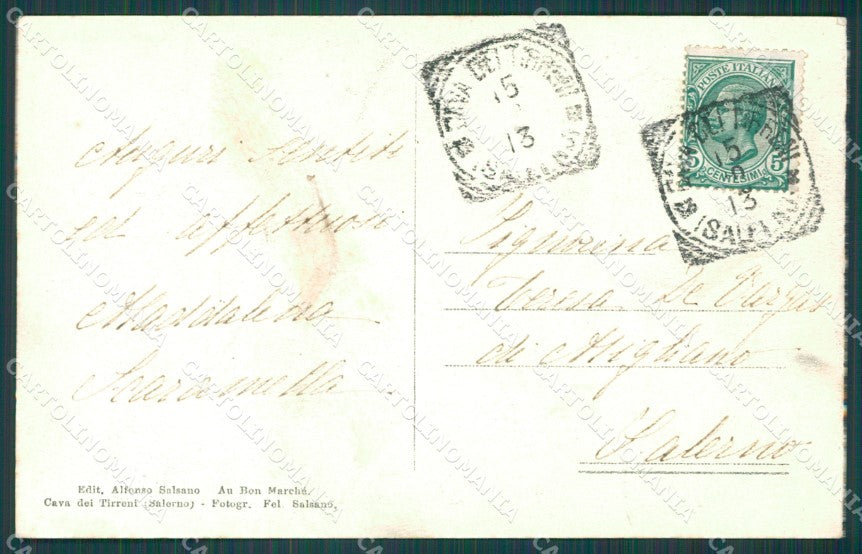 CAVA DEI TIRRENI
15
13
(SALERNO)
POSTE ITALIANE
5 CENTESIMI 5
CAVA DEI TIRRENI
15
13
(SALERNO)
Auguri sentiti
ed affettuosi
Maddalena
Scaramella
Signorina
Teresa De Vargas
di Migliano
Salerno
Edit. Alfonso Salsano Au Bon Marché.
Cava dei Tirreni (Salerno) - Fotogr. Fel. Salsano.
CARTOLINOMANIA